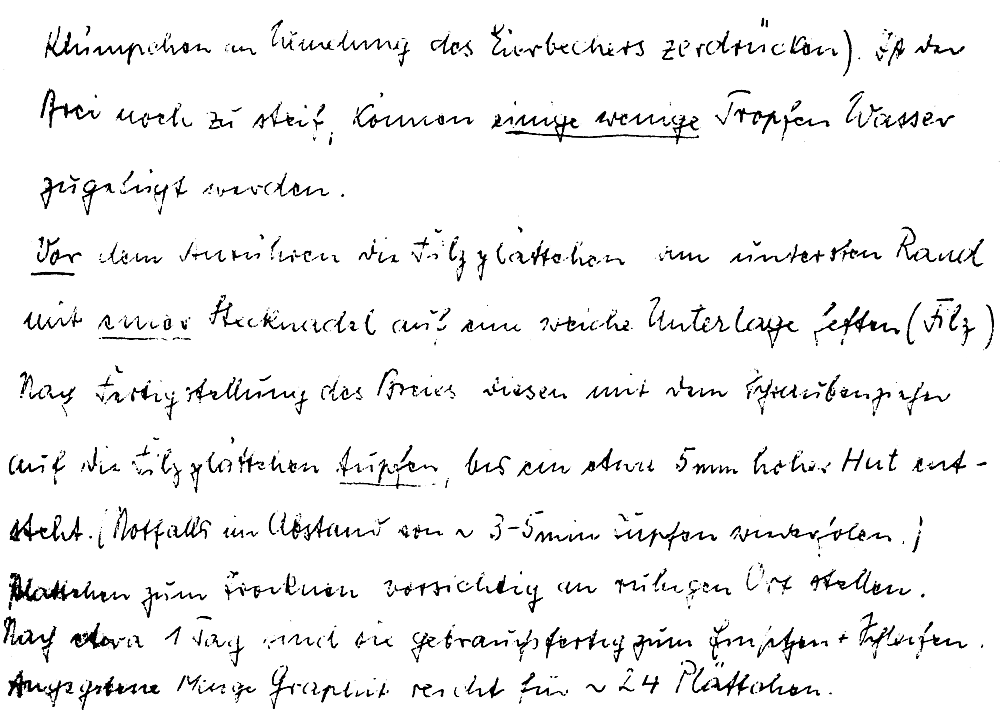 Klümpchen an Rundung des Eierbechers zerdrücken). Ist der
Brei noch zu steif, können einige wenige Tropfen Wasser
zugefügt werden.
Vor dem Anrühren die Filzplättchen am untersten Rand
mit einer Stecknadel auf eine weiche Unterlage heften (Filz)
Nach Fertigstellung des Breies diesen mit dem Schraubenzieher
auf die Filzplättchen tupfen, bis ein etwa 5mm hoher Hut ent-
steht. (Notfalls im Abstand von ~ 3-5min tupfen wiederholen.)
Plättchen zum Trocknen vorsichtig an ruhigen Ort stellen.
Nach etwa 1 Tag sind sie gebrauchsfertig zum Einsetzen + Schleifen.
Angegebene Menge Graphit reicht für ~ 24 Plättchen.